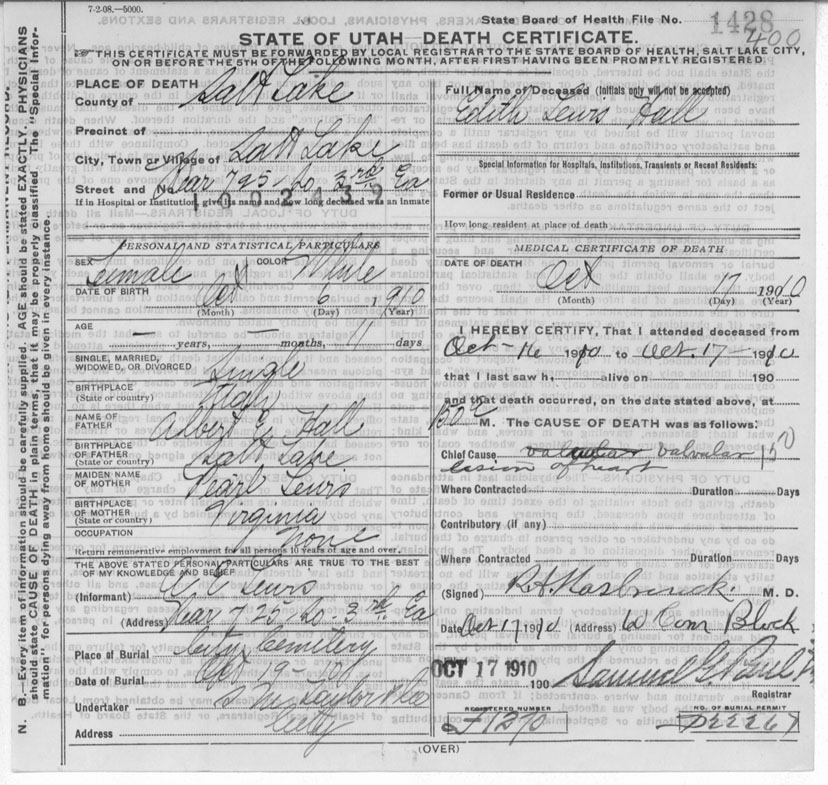 7-2-08.—5000.
State Board of Health File No. 1428
400
STATE OF UTAH—DEATH CERTIFICATE.
THIS CERTIFICATE MUST BE FORWARDED BY LOCAL REGISTRAR TO THE STATE BOARD OF HEALTH, SALT LAKE CITY,
ON OR BEFORE THE 5TH OF THE FOLLOWING MONTH, AFTER FIRST HAVING BEEN PROMPTLY REGISTERED
N. B.—Every item of information should be carefully supplied. AGE should be stated EXACTLY. PHYSICIANS
should state CAUSE OF DEATH in plain terms, that it may be properly classified. The "Special Infor-
mation" for persons dying away from home should be given in every instance.
PLACE OF DEATH
County of Salt Lake
Precinct of
City, Town or Village of Salt Lake
Street and No. Rear 725 So 3rd Ea
1032439
If in Hospital or Institution, give its name and how long deceased was an inmate
PERSONAL AND STATISTICAL PARTICULARS
SEX Female COLOR White
DATE OF BIRTH Oct 6 1910
(Month) (Day) (Year)
AGE — years, — months, 11 days
SINGLE, MARRIED,
WIDOWED, OR DIVORCED Single
BIRTHPLACE
(State or country) Utah
NAME OF
FATHER Albert E. Hall
BIRTHPLACE
OF FATHER
(State or country) Salt Lake
MAIDEN NAME
OF MOTHER Pearl Lewis
BIRTHPLACE
OF MOTHER
(State or country) Virginia
OCCUPATION None
Return remunerative employment for all persons 10 years of age and over.
THE ABOVE STATED PERSONAL PARTICULARS ARE TRUE TO THE BEST
OF MY KNOWLEDGE AND BELIEF
(Informant) Lewis
(Address) Rear 725 So 3rd Ea
Place of Burial City Cemetery
Date of Burial Oct 19 190
Undertaker Taylor & Co
Address City
Full Name of Deceased (Initials only will not be accepted)
Edith Lewis Hall
Special Information for Hospitals, Institutions, Transients or Recent Residents:
Former or Usual Residence
How long resident at place of death
MEDICAL CERTIFICATE OF DEATH
DATE OF DEATH
Oct 17 1910
(Month) (Day) (Year)
I HEREBY CERTIFY, That I attended deceased from
Oct-16 1910 to Oct. 17 1910
that I last saw h alive on 190
and that death occurred, on the date stated above, at
M. The CAUSE OF DEATH was as follows:
Chief Cause valvular 150
lesion of heart
Where Contracted Duration Days
Contributory (if any)
Where Contracted Duration Days
(Signed) R.A. Hasbrouck M. D.
Date Oct 17, 1910 (Address) W Com Block
OCT 17 1910 190 Samuel G. Paul
Registrar
REGISTERED NUMBER
NO. OF BURIAL PERMIT
(OVER)